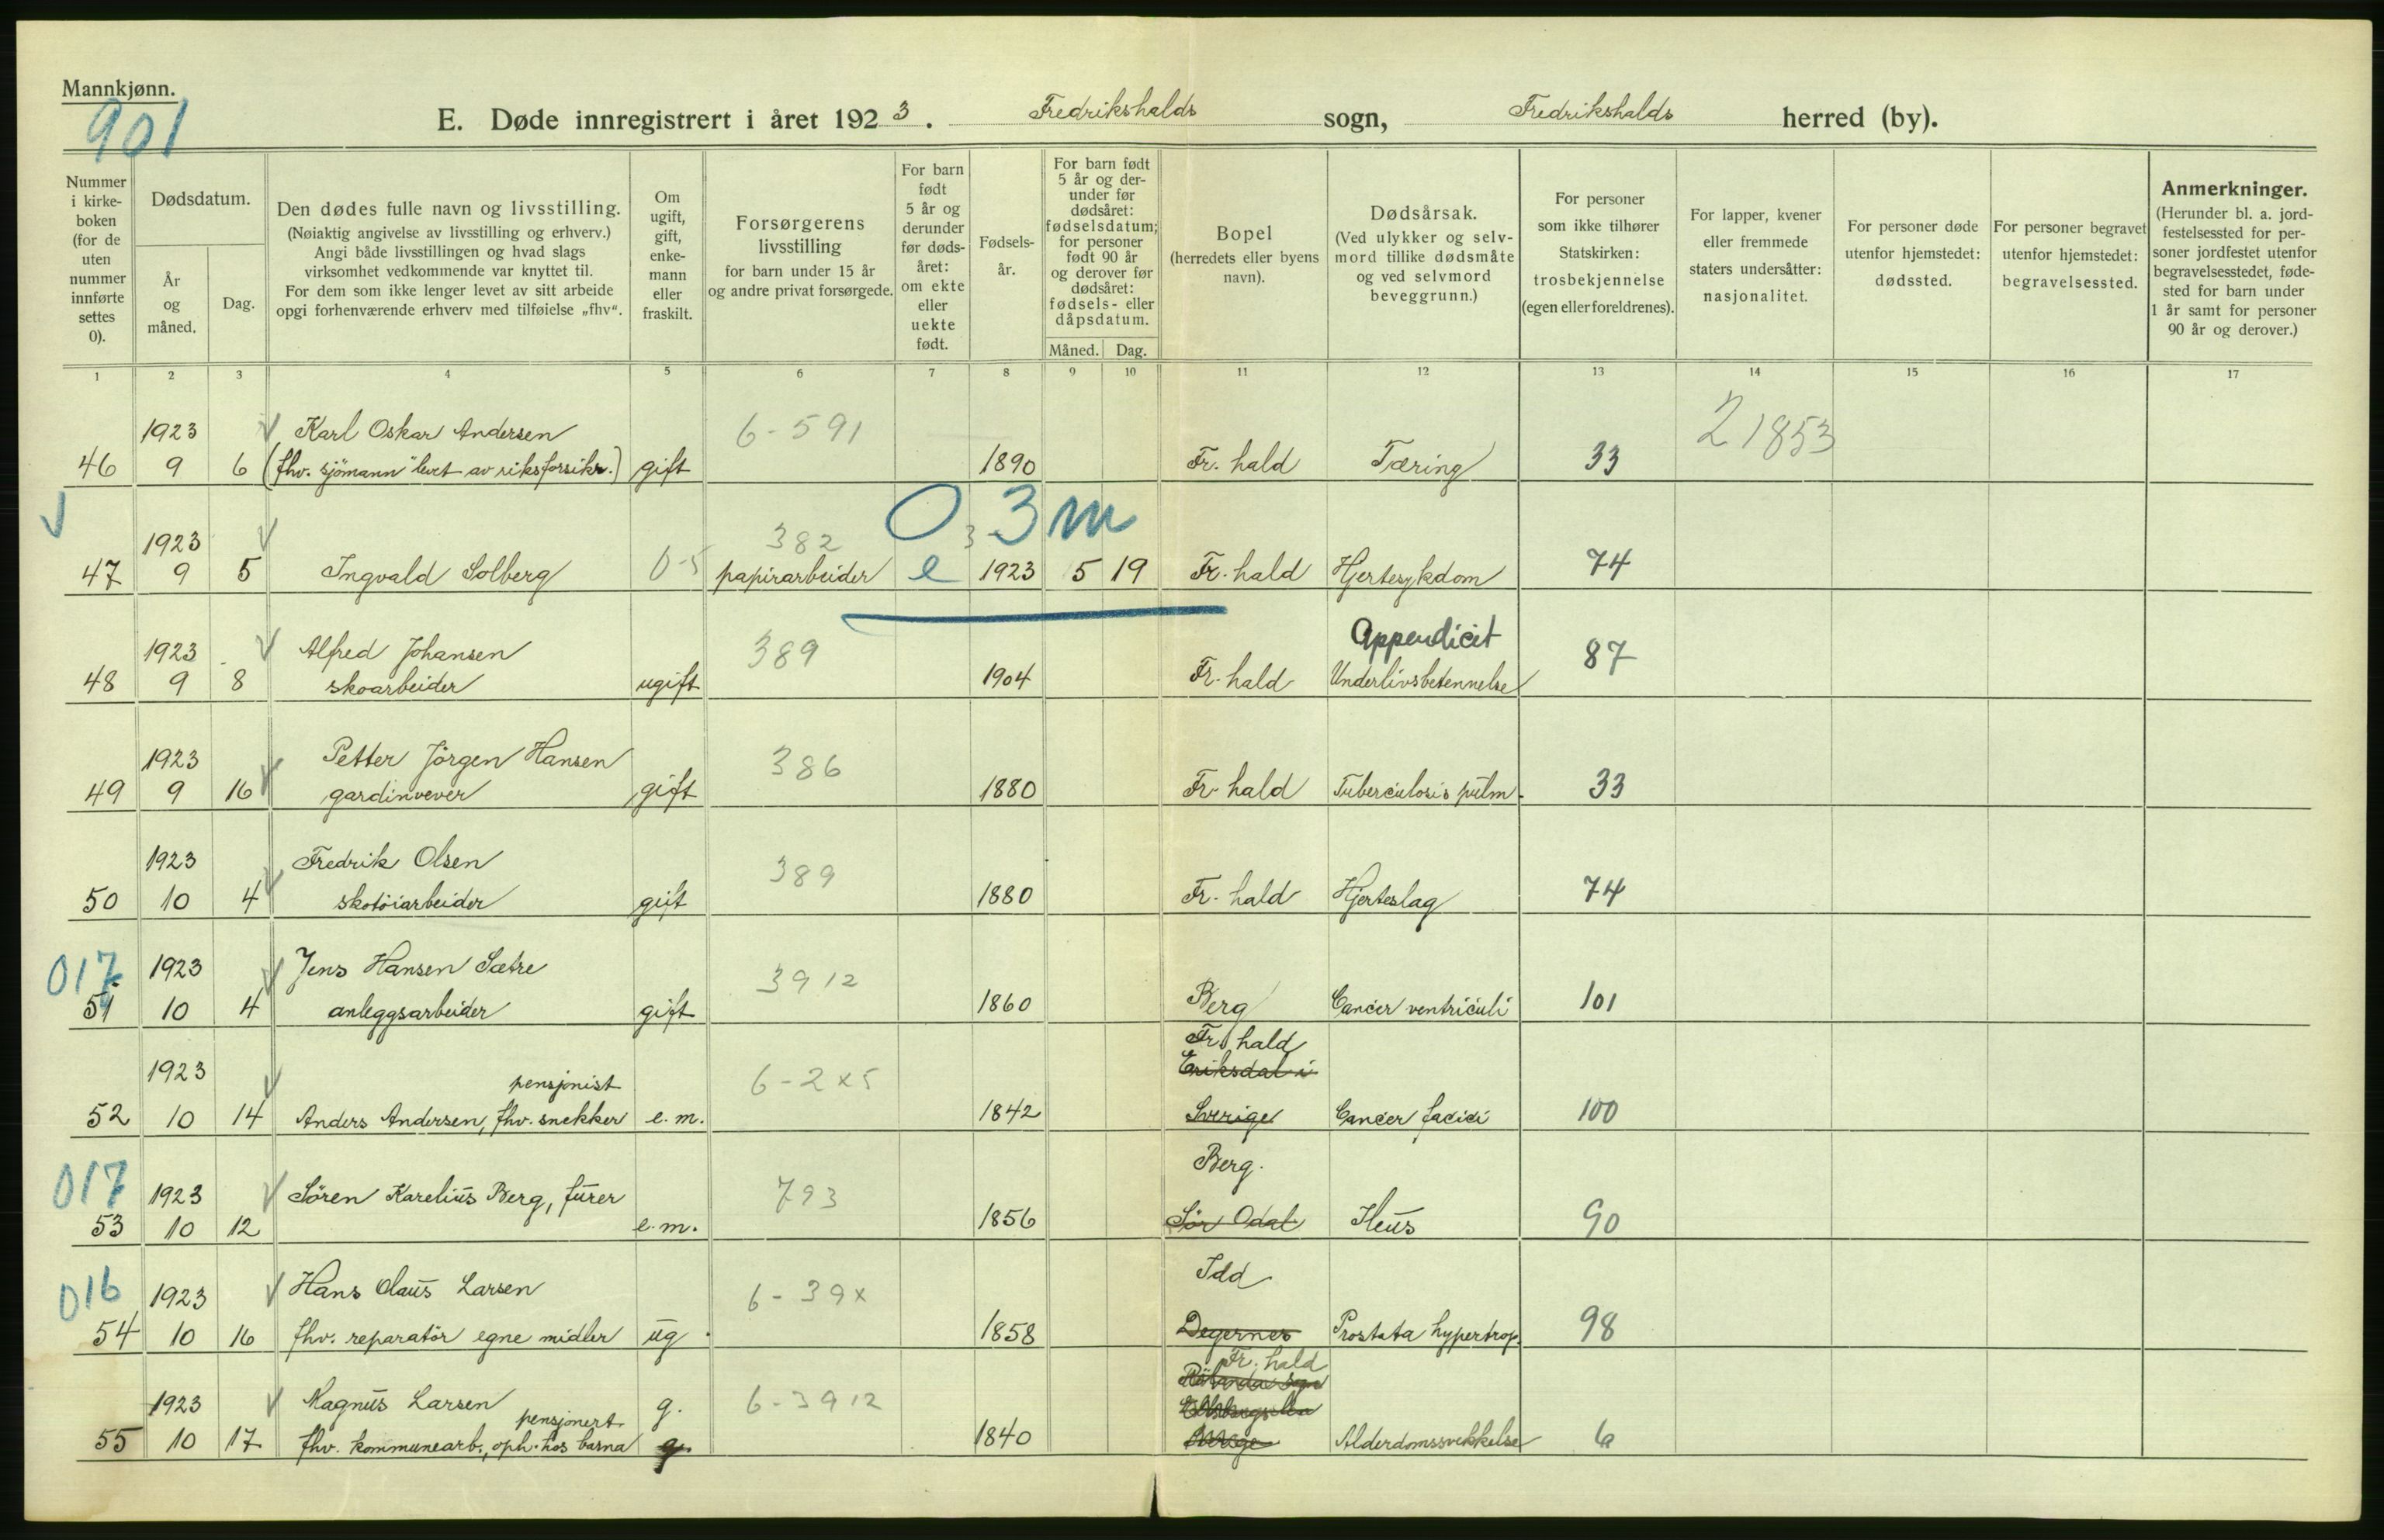 Mannkjønn.
901
E. Døde innregistrert i året 1923. Fredrikshalds sogn, Fredrikshalds herred (by).
Nummer i kirke-boken (for de uten nummer innførte settes 0).
Dødsdatum.
År og måned.
Dag.
Den dødes fulle navn og livsstilling.
(Nøiaktig angivelse av livsstilling og erhverv.)
Angi både livsstillingen og hvad slags
virksomhet vedkommende var knyttet til.
For dem som ikke lenger levet av sitt arbeide
opgi forhenværende erhverv med tilføielse „fhv“.
Om ugift, gift, enke-mann eller fraskilt.
Forsørgerens
livsstilling
for barn under 15 år
og andre privat forsørgede.
For barn født 5 år og derunder før døds-året: om ekte eller uekte født.
Fødsels-år.
For barn født 5 år og der-under før dødsåret: fødselsdatum; for personer født 90 år og derover før dødsåret: fødsels- eller dåpsdatum.
Måned. Dag.
Bopel
(herredets eller byens
navn).
Dødsårsak.
(Ved ulykker og selv-
mord tillike dødsmåte
og ved selvmord
beveggrunn.)
For personer
som ikke tilhører
Statskirken:
trosbekjennelse
(egen eller foreldrenes).
For lapper, kvener
eller fremmede
staters undersåtter:
nasjonalitet.
For personer døde
utenfor hjemstedet:
dødssted.
For personer begravet
utenfor hjemstedet:
begravelsessted.
Anmerkninger.
(Herunder bl. a. jord-
festelsessted for per-
soner jordfestet utenfor
begravelsesstedet, føde-
sted for barn under
1 år samt for personer
90 år og derover.)
1 2 3 4 5 6 7 8 9 10 11 12 13 14 15 16 17
1923 Karl Oskar Andersen 6-591 21853
46 9 6 (fhv. sjömann "levet av riksforsikr.) gift 1890 Fr. hald Tæring 33
0 3 m
1923 382 3
47 9 5 Ingvald Solberg 0-5 papirarbeider e 1923 5 19 Fr. hald Hjertesykdom 74
1923 Alfred Johansen 389 Appendicit
48 9 8 skoarbeider ugift 1904 Fr. hald Underlivsbetennelse 87
1923 Petter Jörgen Hansen 386
49 9 16 gardinvever gift 1880 Fr. hald Tuberculosis pulm. 33
1923 Fredrik Olsen 389
50 10 4 skotöiarbeider gift 1880 Fr. hald Hjerteslag 74
017 1923 Jens Hansen Sætre 3912
51 10 4 anleggsarbeider gift 1860 Berg Cancer ventriculi 101
Fr. hald
1923 pensjonist 6-2x5 Eriksdal i
52 10 14 Anders Andersen, fhv. snekker e. m. 1842 Sverige Cancer facici 100
Berg.
017 1923 Sören Karelius Berg, furer 793
53 10 12 e. m. 1856 Sör Odal Ileus 90
016 1923 Hans Olaus Larsen 6-39x Idd
54 10 16 fhv. reparatör egne midler ug. 1858 Degernes Prostata hypertrop. 98
Fr. hald
1923 Magnus Larsen g. 6-3912
pensjonert
55 10 17 fhv. kommunearb., oph. hos barna g. 1840 Alderdomssvekkelse 6